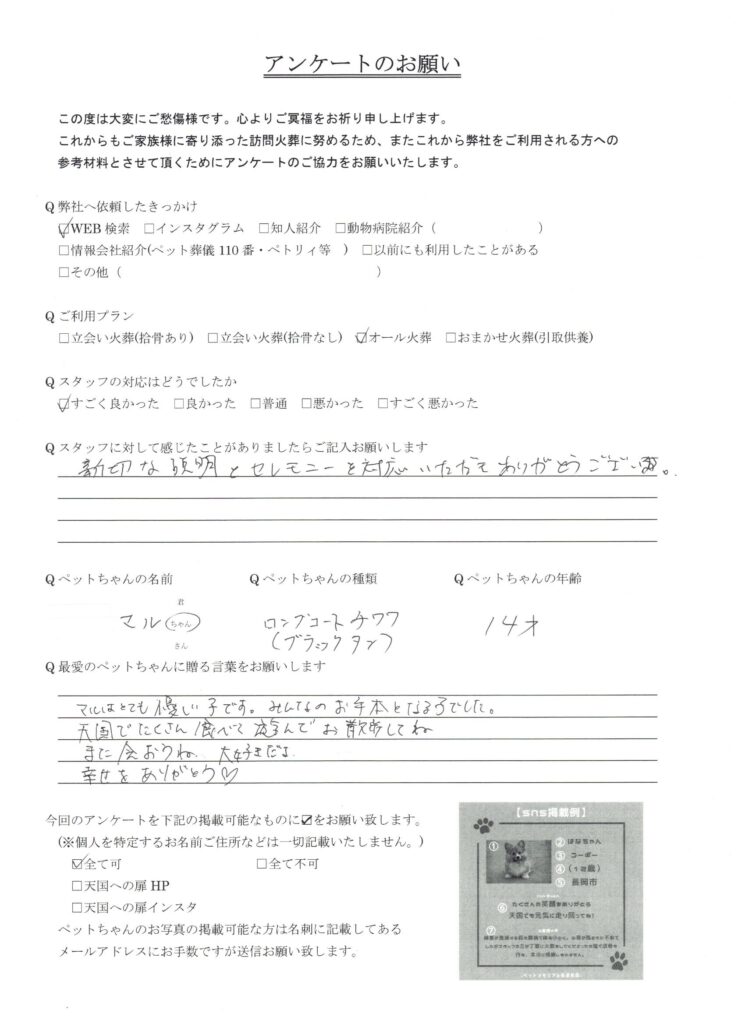 アンケートのお願い
この度は大変にご愁傷様です。心よりご冥福をお祈り申し上げます。
これからもご家族様に寄り添った訪問火葬に努めるため、またこれから弊社をご利用される方への
参考材料とさせて頂くためにアンケートのご協力をお願いいたします。
Q 弊社へ依頼したきっかけ
☑WEB 検索 □インスタグラム □知人紹介 □動物病院紹介（ ）
□情報会社紹介(ペット葬儀 110 番・ペトリィ等 ) □以前にも利用したことがある
□その他（ ）
Q ご利用プラン
□立会い火葬(拾骨あり) □立会い火葬(拾骨なし) ☑オール火葬 □おまかせ火葬(引取供養)
Q スタッフの対応はどうでしたか
☑すごく良かった □良かった □普通 □悪かった □すごく悪かった
Q スタッフに対して感じたことがありましたらご記入お願いします
切な説明とセレモニーを対応いただきありがとうございます。
Q ペットちゃんの名前 Q ペットちゃんの種類 Q ペットちゃんの年齢
君
マル ちゃん ロングコートチワワ 14才
さん (ブラックタン)
Q 最愛のペットちゃんに贈る言葉をお願いします
マルはとても優しい子です。みんなのお手本となる子でした。
天国でたくさん食べて遊んでお散歩してね
また会おうね 大好きだよ
幸せをありがとう♡
今回のアンケートを下記の掲載可能なものに☑をお願い致します。
(※個人を特定するお名前ご住所などは一切記載いたしません。)
☑全て可 □全て不可
□天国への扉 HP
□天国への扉インスタ
ペットちゃんのお写真の掲載可能な方は名刺に記載してある
メールアドレスにお手数ですが送信お願い致します。
【sns掲載例】
① ② はなちゃん
③ コーギー
④ (12歳)
⑤ 長岡市
⑥ たくさんの笑顔をありがとう
天国でも元気に走り回ってね!
⑦